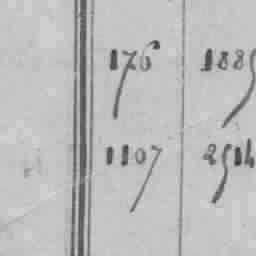 176 1885
1107 2514